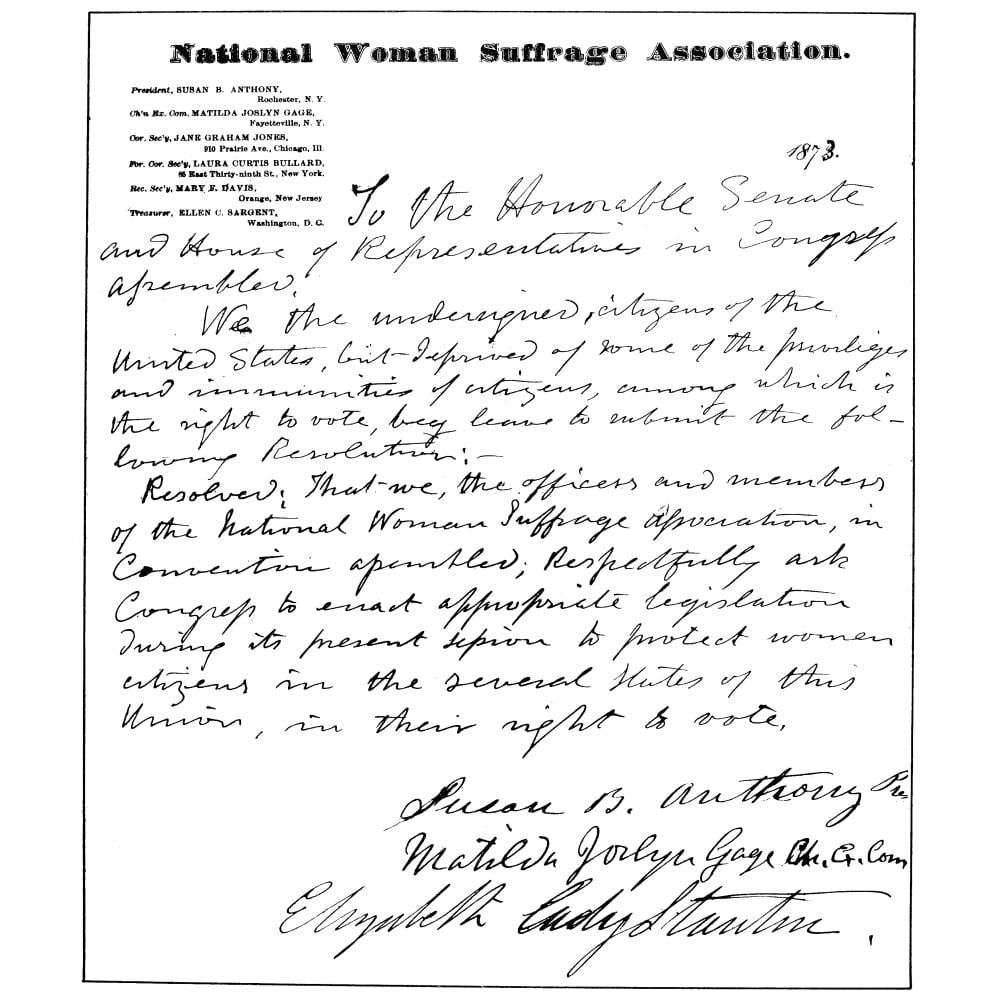 National Woman Suffrage Association.
President, SUSAN B. ANTHONY,
Rochester, N. Y.
Ch'n Ex. Com. MATILDA JOSLYN GAGE,
Fayetteville, N. Y.
Cor. Sec'y, JANE GRAHAM JONES,
910 Prairie Ave., Chicago, Ill.
For. Cor. Sec'y, LAURA CURTIS BULLARD,
86 East Thirty-ninth St., New York.
Rec. Sec'y, MARY F. DAVIS,
Orange, New Jersey
Treasurer, ELLEN C. SARGENT,
Washington, D. C.
1873.
To the Honorable Senate
and House of Representatives in Congress
assembled.
We the undersigned, citizens of the
United States, but deprived of some of the priviliges
and immunities of citizens, among which is
the right to vote, beg leave to submit the fol-
lowing Resolution:—
Resolved; That we, the officers and members
of the National Woman Suffrage Association, in
Convention assembled; Respectfully ask
Congress to enact appropriate legislation
during its present session to protect women
citizens in the several States of this
Union, in their right to vote.
Susan B. Anthony Pres
Matilda Joslyn Gage Ch. Ex. Com
Elizabeth Cady Stanton.